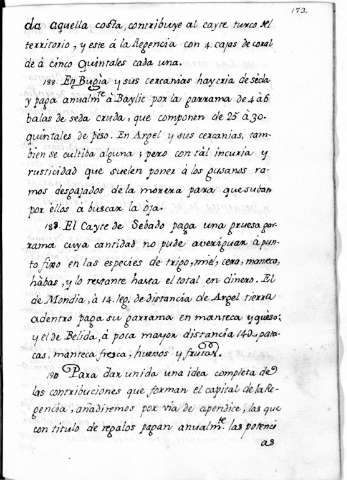 173.
da aquella costa, contribuye al cayte turco del
territorio, y este á la Regencia con 4 cajas de coral
de á cinco quintales cada una.
188 En Bugia y sus cercanias hay cria de seda
y paga anualmte á Baylic por la garrama de 4 á 6
balas de seda cruda, que componen de 25 á 30.
quintales de peso. En Argel y sus cercanias, tam-
bien se cultiba alguna; pero con tál incuria y
rusticidad que suelen poner á los gusanos ra-
mos desgajados de la morera para que suban
por ellos á buscar la oja.
189. El Cayte de Sebado paga una gruesa gar-
rama cuya cantidad no pude averiguar á pun-
to fixo en las especies de trigo, miel, cera, manteca,
hábas, y lo restante hasta el total en dinero. El
de Mondia, á 14. leg. de distancia de Argel tierra
adentro paga su garrama en manteca y queso;
y el de Belida, á poca mayor distancia 140 pata-
cas, manteca fresca, huevos y frutas.
190 Para dar unida una idea completa de
las contribuciones que forman el capital de la Re-
gencia, añadiremos por via de apendice, las que
con titulo de regalos pagan anualmte. las potenci
as